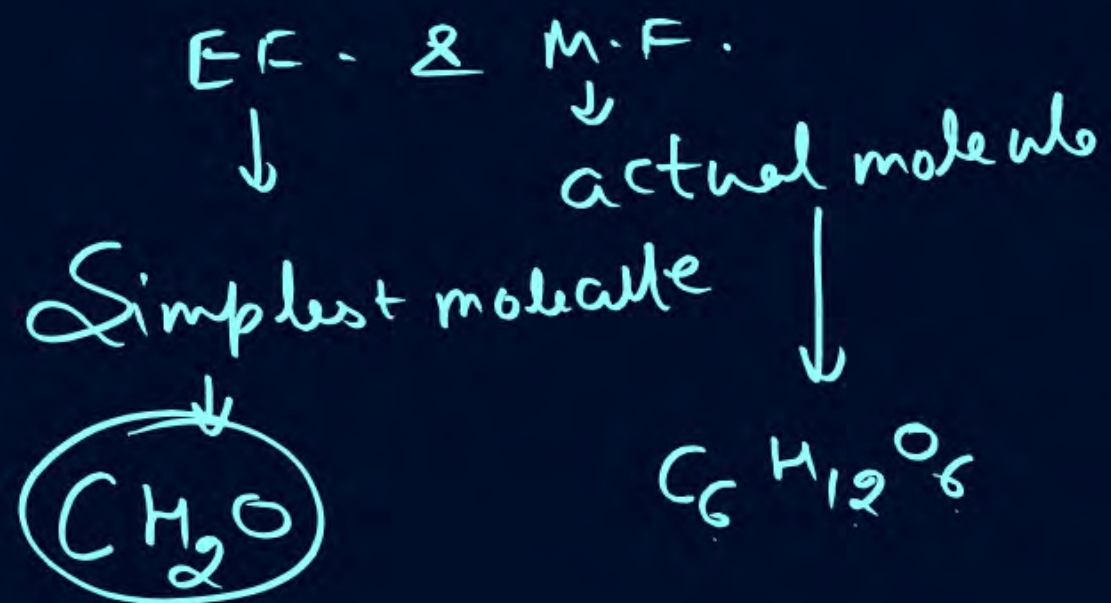 E.F. & M.F.
actual molecule
Simplest molecule
CH₂O
C₆H₁₂O₆